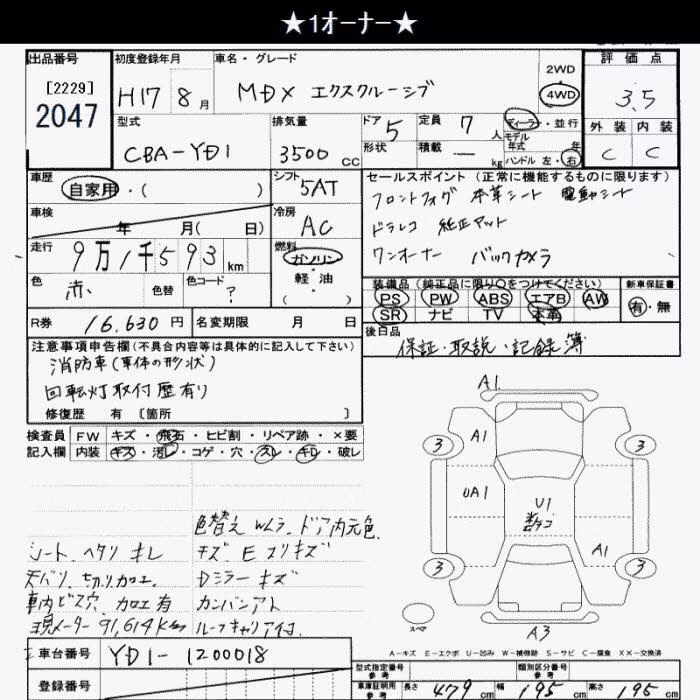 ★1オーナー★
出品番号 初度登録年月 車名・グレード 評価点
[2229]
2047
H17 8月 MDX エクスクルーシブ 2WD 4WD 3.5
型式 排気量 ドア 5 定員 7人 ディーラー・並行
モデル年式 年
外装 内装
CBA-YD1 3500cc 形状 積載 — kg ハンドル 左・右 C C
車歴 自家用・( ) シフト 5AT
セールスポイント (正常に機能するものに限ります)
フロントフォグ 本革シート 電動シート
車検 年 月( 日) 冷房 AC
ドラレコ 純正マット
走行 9万1千593km 燃料 ガソリン・軽油( )
ワンオーナー バックカメラ
色 赤 色替 色コード ?
装備品 (純正品に限り○をつけてください) 新車保証書
PS PW ABS エアB AW 有・無
SR ナビ TV 本革
R券 16.630円 名変期限 月 日
後日品
保証・取説・記録簿
注意事項申告欄(不具合内容等は具体的に記入して下さい)
消防車(車体の形状)
回転灯取付歴有り
修復歴 有 [箇所 ]
検査員 FW キズ・飛石・ヒビ割・リペア跡・×要
記入欄 内装 キズ・汚レ・コゲ・穴・スレ・キレ・破レ
色替え Wムラ、ドア内元色、
シート、ヘタリ キレ キズ E スリキズ
天バリ、切り加工、 Dミラーキズ
車内ビス穴、加工有 カンバンアト
現メーター 91,614Km ルーフキャリア付、
A1
3 A1 3
UA1 U1
数ケコ
3 A1 3
スペア
A3
A-キズ E-エクボ U-凹み W-補修跡 S-サビ C-腐食 XX-交換済
車台番号 YD1-1200018
登録番号
型式指定番号 参考 類別区分番号 参考
車庫証明用 参考 長さ 479cm 幅 195cm 高さ 195cm